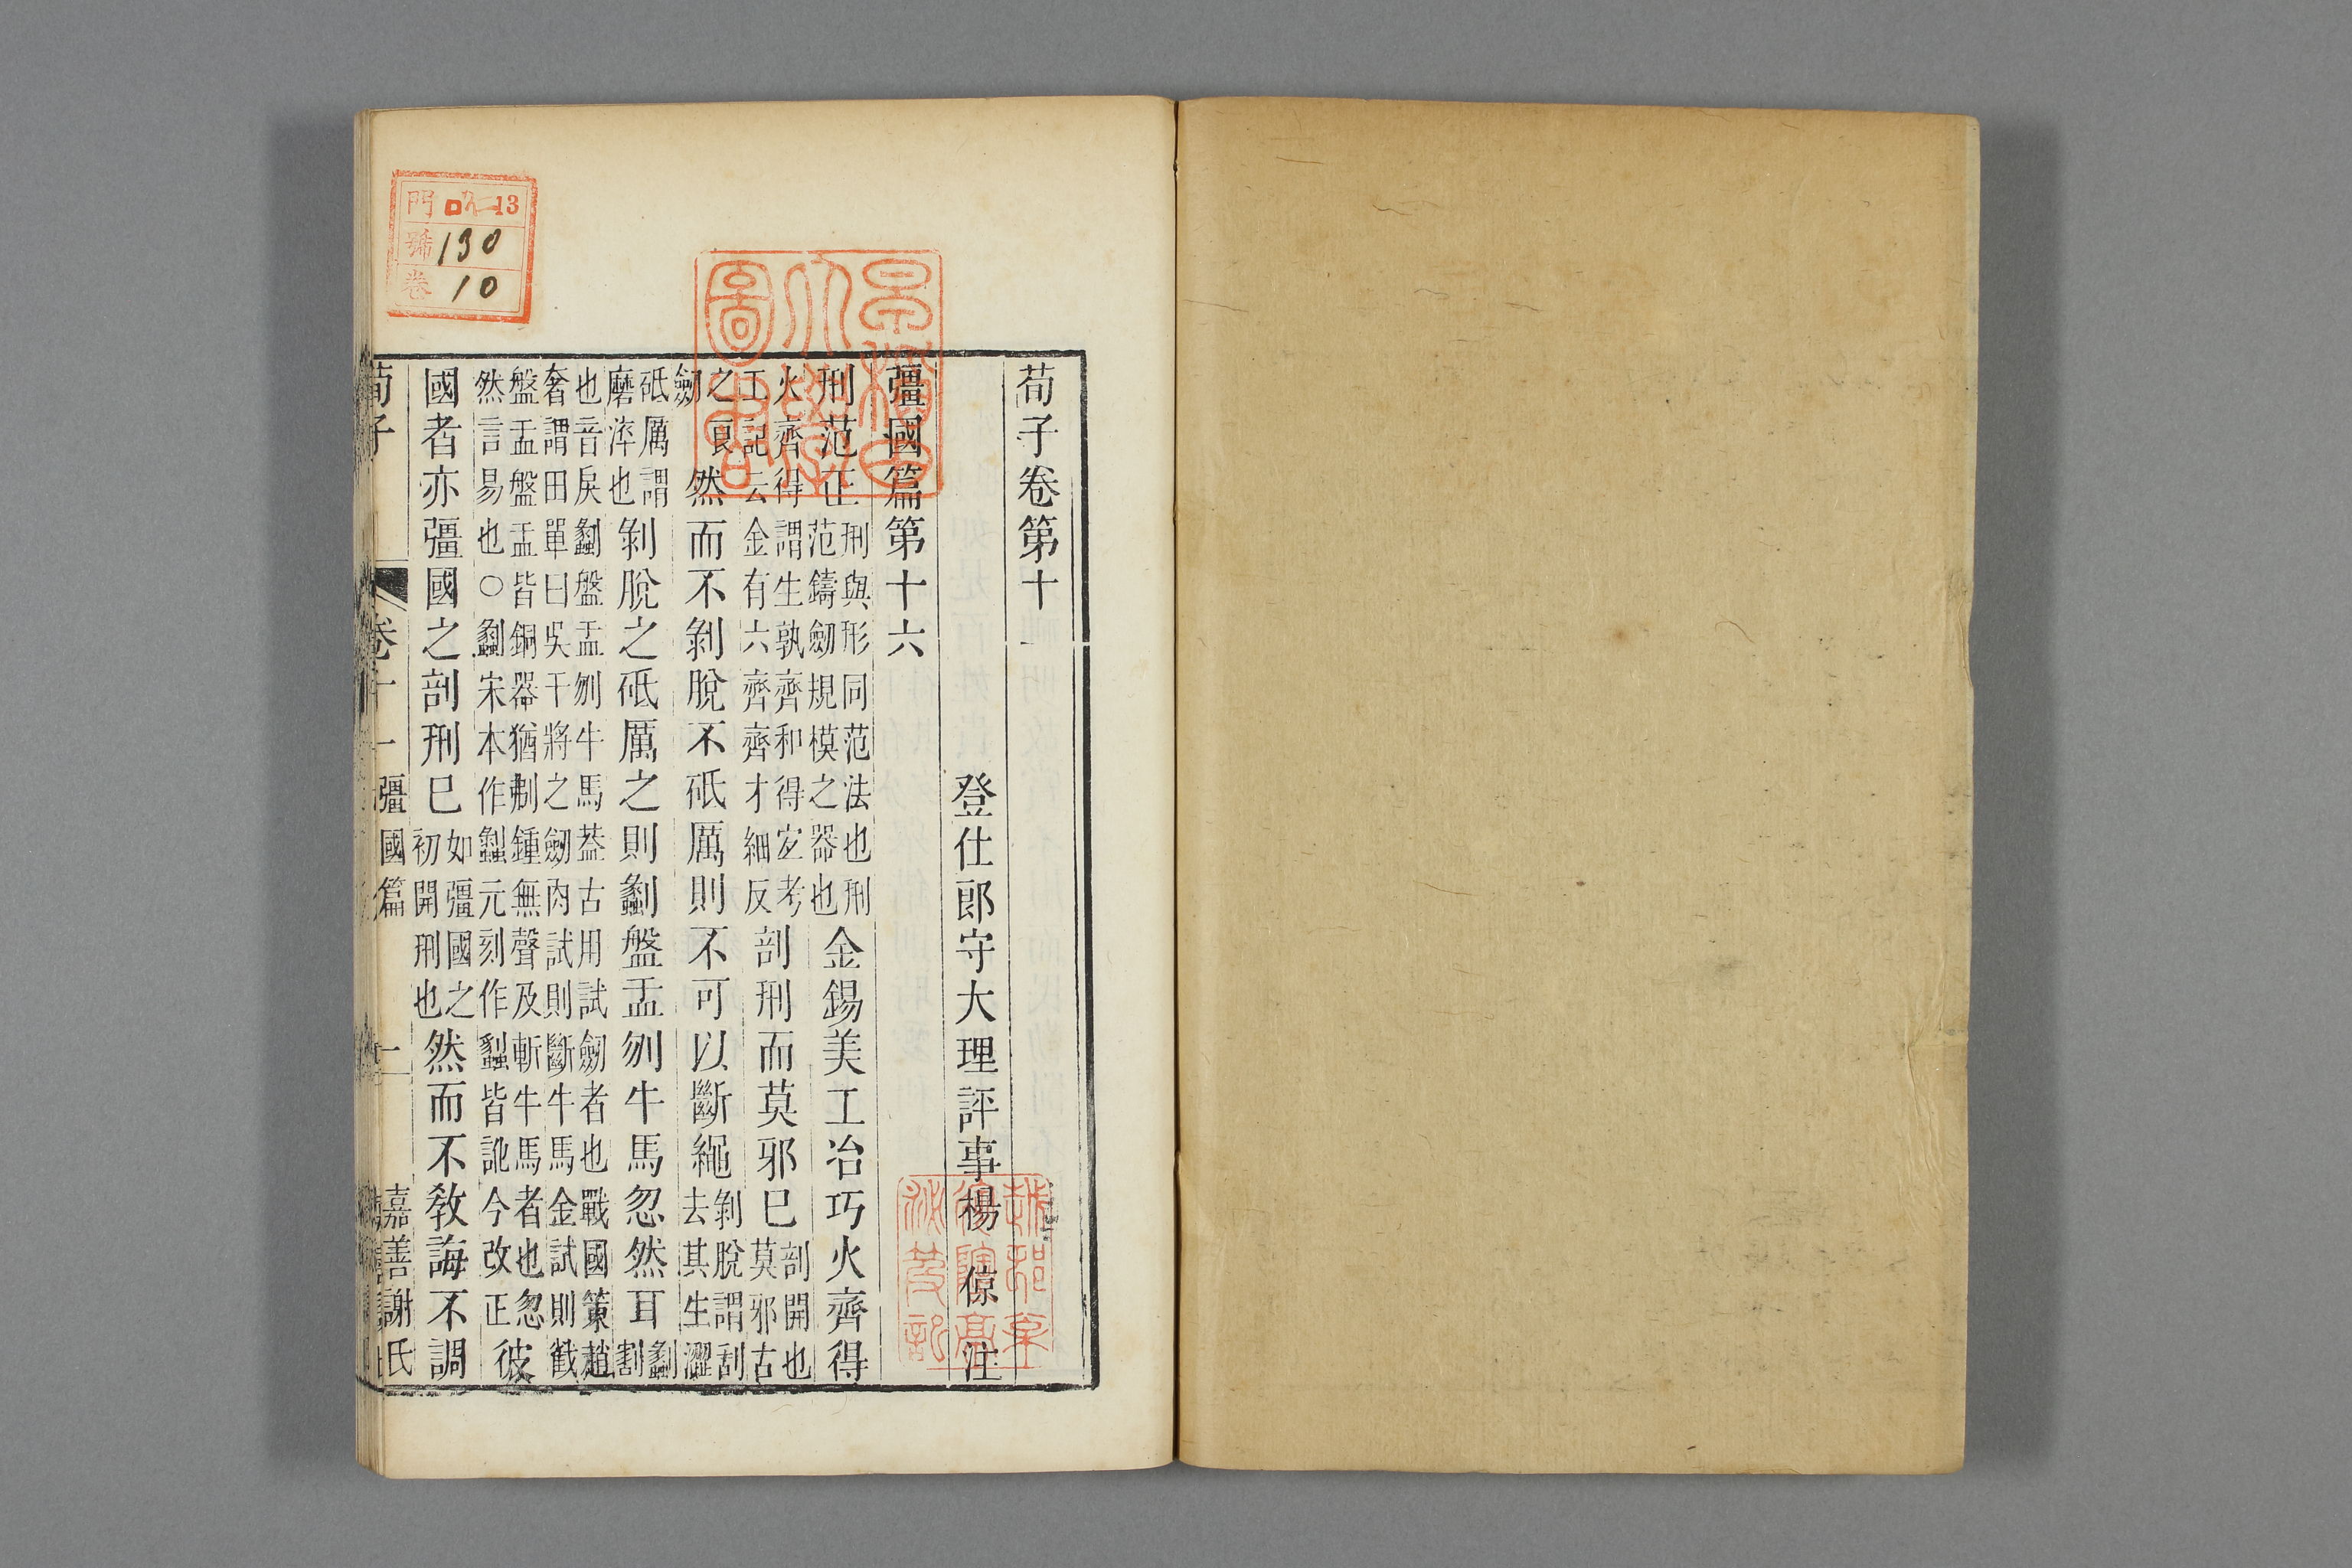 荀子卷第十一
登仕郎守大理評事楊倞注
彊國篇第十六
刑范正刑與形同范法也刑范鑄劒規模之器也金錫美工冶巧火齊得
火齊得謂生孰齊和得宐考工記云金有六齊齊才細反剖刑而莫邪巳剖開也莫邪古
之良劒然而不剝脫不砥厲則不可以斷繩剝脫謂刮去其生澀
砥厲謂磨淬也剝脫之砥厲之則劙盤盂刎牛馬忽然耳劙割
也音戾劙盤盂刎牛馬葢古用試劒者也戰國策趙奢謂田單曰吳干將之劒肉試則斷牛馬金試則截
盤盂盤盂皆銅器猶刜鍾無聲及斬牛馬者也忽然言易也○劙宋本作元刻作皆訛今改正彼
國者亦彊國之剖刑巳如彊國之初開刑也然而不教誨不調
荀子 卷十一 彊國篇 一 嘉善謝氏
門 ロ 13
號 190
卷 10
早稻田大學圖書